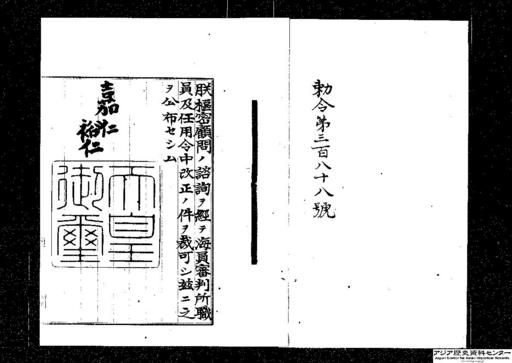 勅令第三百八十八號
朕樞密顧問ノ諮詢ヲ經テ海員審判所職
員及任用令中改正ノ件ヲ裁可シ茲ニ之
ヲ公布セシム
嘉仁
裕仁
天皇
御璽
アジア歴史資料センター
Japan Center for Asian Historical Records